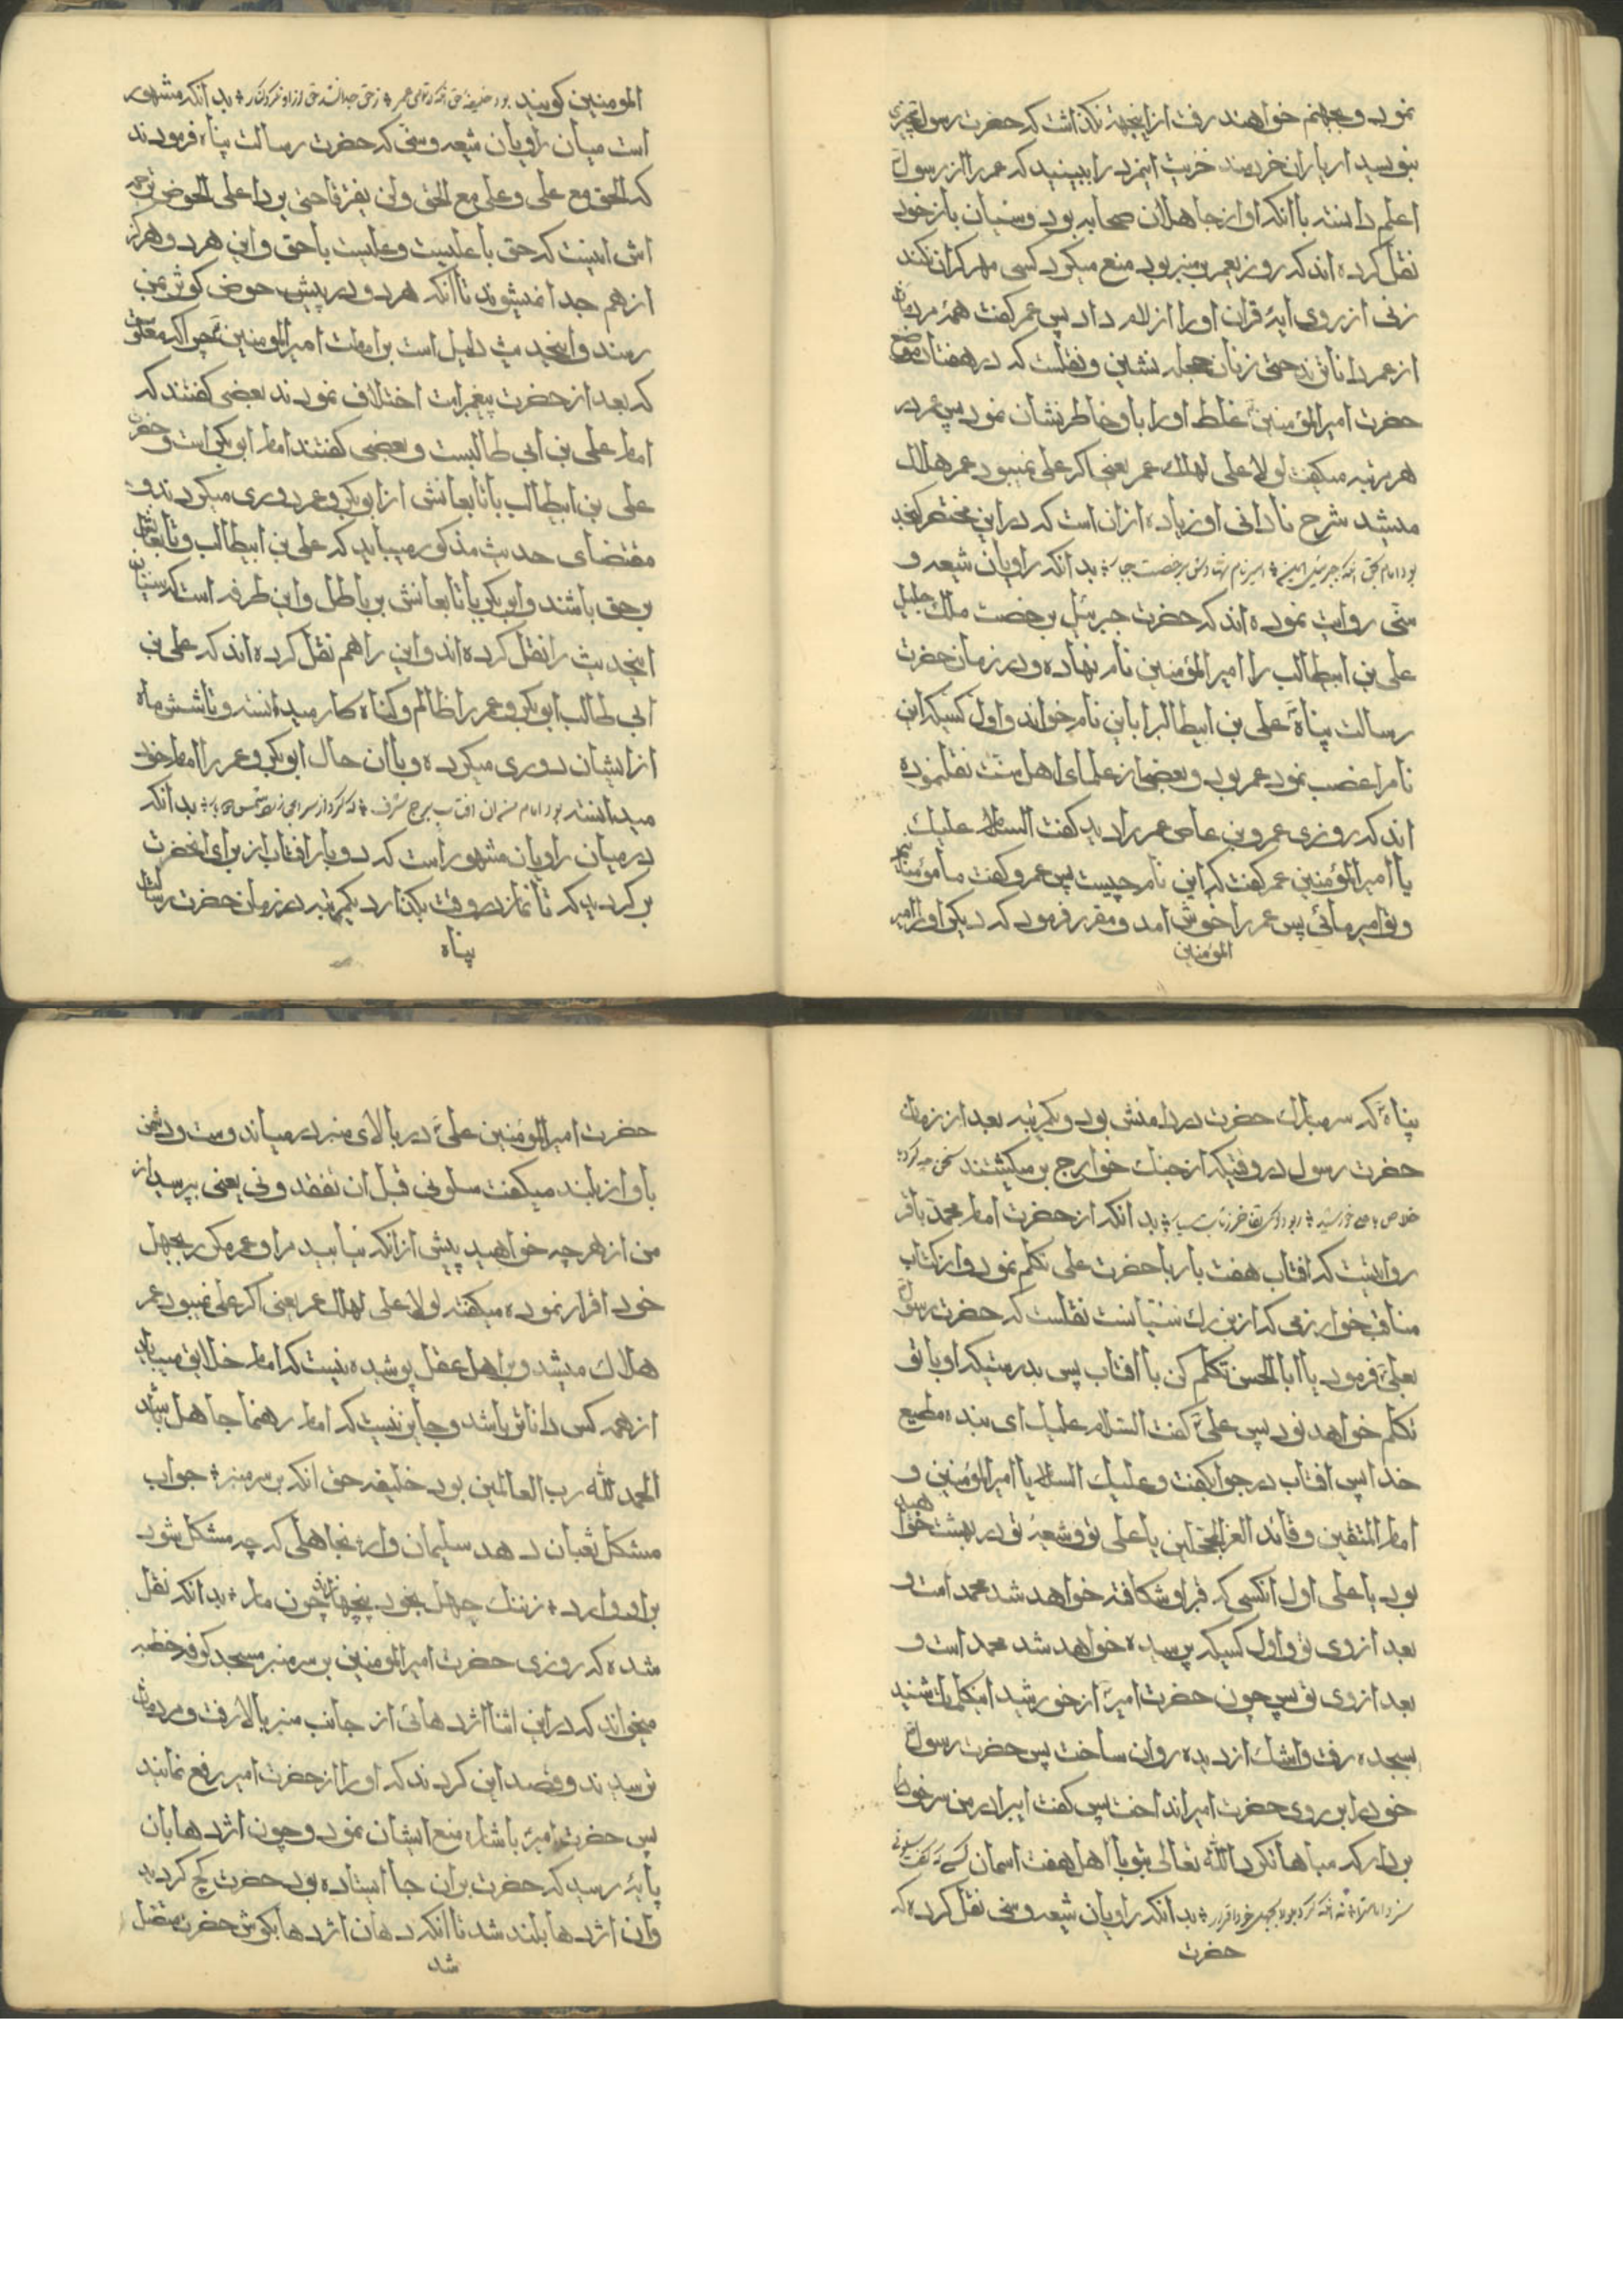 نمود و بجهنم خواهند رفت ازینجهة نکذاشت که حضرت رسول چیزی
بنویسد ای یاران خردمند خریت اینمرد را ببینید که عمر را از رسول
اعلم دانسته با انکه او از جاهلان صحابه بود و سنیان باز خود
نقل کرده اند که روزی عمر بر منبر بود منع میکرد کسی مهر کران نکند
زنی از روی ایهٔ قران او را الزام داد پس عمر کفت همهٔ مردمان
از عمر داناترند حتی زنان حجله نشین و نقلست که در هفتاد موضع
حضرت امیرالمؤمنین غلط او را باو خاطر نشان نمود پس عمر در
هر مرتبه میکفت لولا علی لهلك عمر یعنی اکر علی نمیبود عمر هلاك
میشد شرح نادانی او زیاده از ان است که در این مختصر کنجد
بود امام بحق انکه جبرئیل امین ؞ امیر نام نهادش برخصت جبار ؞ بدانکه راویان شیعه و
سنی روایت نموده اند که حضرت جبرئیل برخصت ملك جلیل
علی بن ابیطالب را امیرالمؤمنین نام نهاده و در زمان حضرت
رسالت پناه علی بن ابیطالب را باین نام خواند و اول کسیکه این
نام را غصب نمود عمر بود و بعضی از علمای اهل سنت نقلنموده
اند که روزی عمرو بن عاص عمر را دید کفت السلام علیك
یا امیرالمؤمنین عمر کفت که این نام چیست پس عمرو کفت ما مؤمنانیم
و تو امیر مائی پس عمر را خوش امد و مقرر فرمود که دیکر او را امیر
المؤمنین
المومنین کویند بود خلیفه حق انکه در توای عمر ؞ ز حق جدا نشد حق ازو نکرد کنار ؞ بدانکه مشهور
است میان راویان شیعه و سنی که حضرت رسالت پناه فرمودند
که الحق مع علی و علی مع الحق ولن یفترقا حتی یردا علی الحوض ترجمه
اش اینست که حق با علیست و علیست با حق و این هر دو هرکز
از هم جدا نمیشوند تا انکه هر دو در پیش حوض کوثر بمن
رسند و اینحدیث دلیل است بر امامت امیرالمومنین چرا که معلوم است
که بعد از حضرت پیغمبر امت اختلاف نمودند بعضی کفتند که
امام علی بن ابی طالبست و بعضی کفتند امام ابوبکر است و حضرت
علی بن ابیطالب با تابعانش از ابوبکر و عمر دوری میکردند و به
مقتضای حدیث مذکور میباید که علی بن ابیطالب و تابعانش
بر حق باشند و ابوبکر با تابعانش بر باطل و این طرفه است که سنیان
اینحدیث را نقل کرده اند و این را هم نقل کرده اند که علی بن
ابی طالب ابوبکر و عمر را ظالم و کناه کار میدانسته و تا شش ماه
از ایشان دوری میکرده و با ان حال ابوبکر و عمر را امام خود
میدانسته بود امام مبین ان افتاب برج شرف ؞ بدانکه
در میان راویان مشهور است که دو بار افتاب از برای انحضرت
بر کردید که تا نماز در وقت بکذارد یکمرتبه در زمان حضرت رسالت
پناه
پناه که سر مبارك حضرت در دامنش بود و یکمرتبه بعد از زمان
حضرت رسول در وقتیکه از جنك خوارج بر میکشتند سخن چه کرد
بدانکه از حضرت امام محمد باقر
روایتست که افتاب هفت بار با حضرت علی تکلم نمود و از کتاب
مناقب خوارزمی که از بزرك سنیانست نقلست که حضرت رسول
بعلی فرمود یا ابا الحسن تکلم کن با افتاب پس بدرستیکه او با تو
تکلم خواهد نمود پس علی کفت السلام علیك ای بنده مطیع
خدا پس افتاب در جواب کفت و علیك السلام یا امیرالمؤمنین و
امام المتقین و قائد الغر المحجلین یا علی تو و شیعهٔ تو در بهشت خواهید
بود یا علی اول انکسی که قبر او شکافته خواهد شد محمد است و
بعد از وی تو و اول کسیکه پرسیده خواهد شد محمد است و
بعد از وی تو پس چون حضرت امیر از خورشید اینکلمات شنید
بسجده رفت و اشك از دیده روان ساخت پس حضرت رسول
خود را بر روی حضرت امیر انداخت پس کفت ایبرادر من سر خود را
بردار که مباهات کرد الله تعالی بتو با اهل هفت اسمان کسی که کفت سلونی
سزد امامترا نه انکه کرد بود بجهل خود اقرار ؞ بدانکه راویان شیعه و سنی نقل کرده که
حضرت
حضرت امیرالمؤمنین علی در بالای منبر در میان دوست و دشمن
باواز بلند میکفت سلونی قبل ان تفقدونی یعنی بپرسید از
من از هر چه خواهید پیش از انکه نیابید مرا و عمر مکرر بجهل
خود اقرار نموده میکفته لولا علی لهلك عمر یعنی اکر علی نمیبود عمر
هلاك میشد و بر اهل عقل پوشیده نیست که امام خلایق میباید
از همه کس داناتر باشد و جایز نیست که امام رهنما جاهل باشد
الحمد لله رب العالمین بود خلیفه حق انکه بر سر منبر ؞ جواب
مشکل ثعبان دهد سلیمان وار نه جاهلی که چه مشکل شود
برو وارد ؞ ز ننك جهل بخود پیچد چون مار ؞ بدانکه نقل
شده که روزی حضرت امیرالمومنین بر سر منبر مسجد کوفه خطبه
میخواند که در این اثنا اژدهائی از جانب منبر بالا رفت و مردمان
ترسیدند و قصد این کردند که او را از حضرت امیر رفع نمایند
پس حضرت امیر باشاره منع ایشان نمود و چون اژدها بان
پایهٔ رسید که حضرت بر ان جا ایستاده بود حضرت کج کردید
وان اژدها بلند شد تا انکه دهان اژدها بکوش حضرت متصل
شد